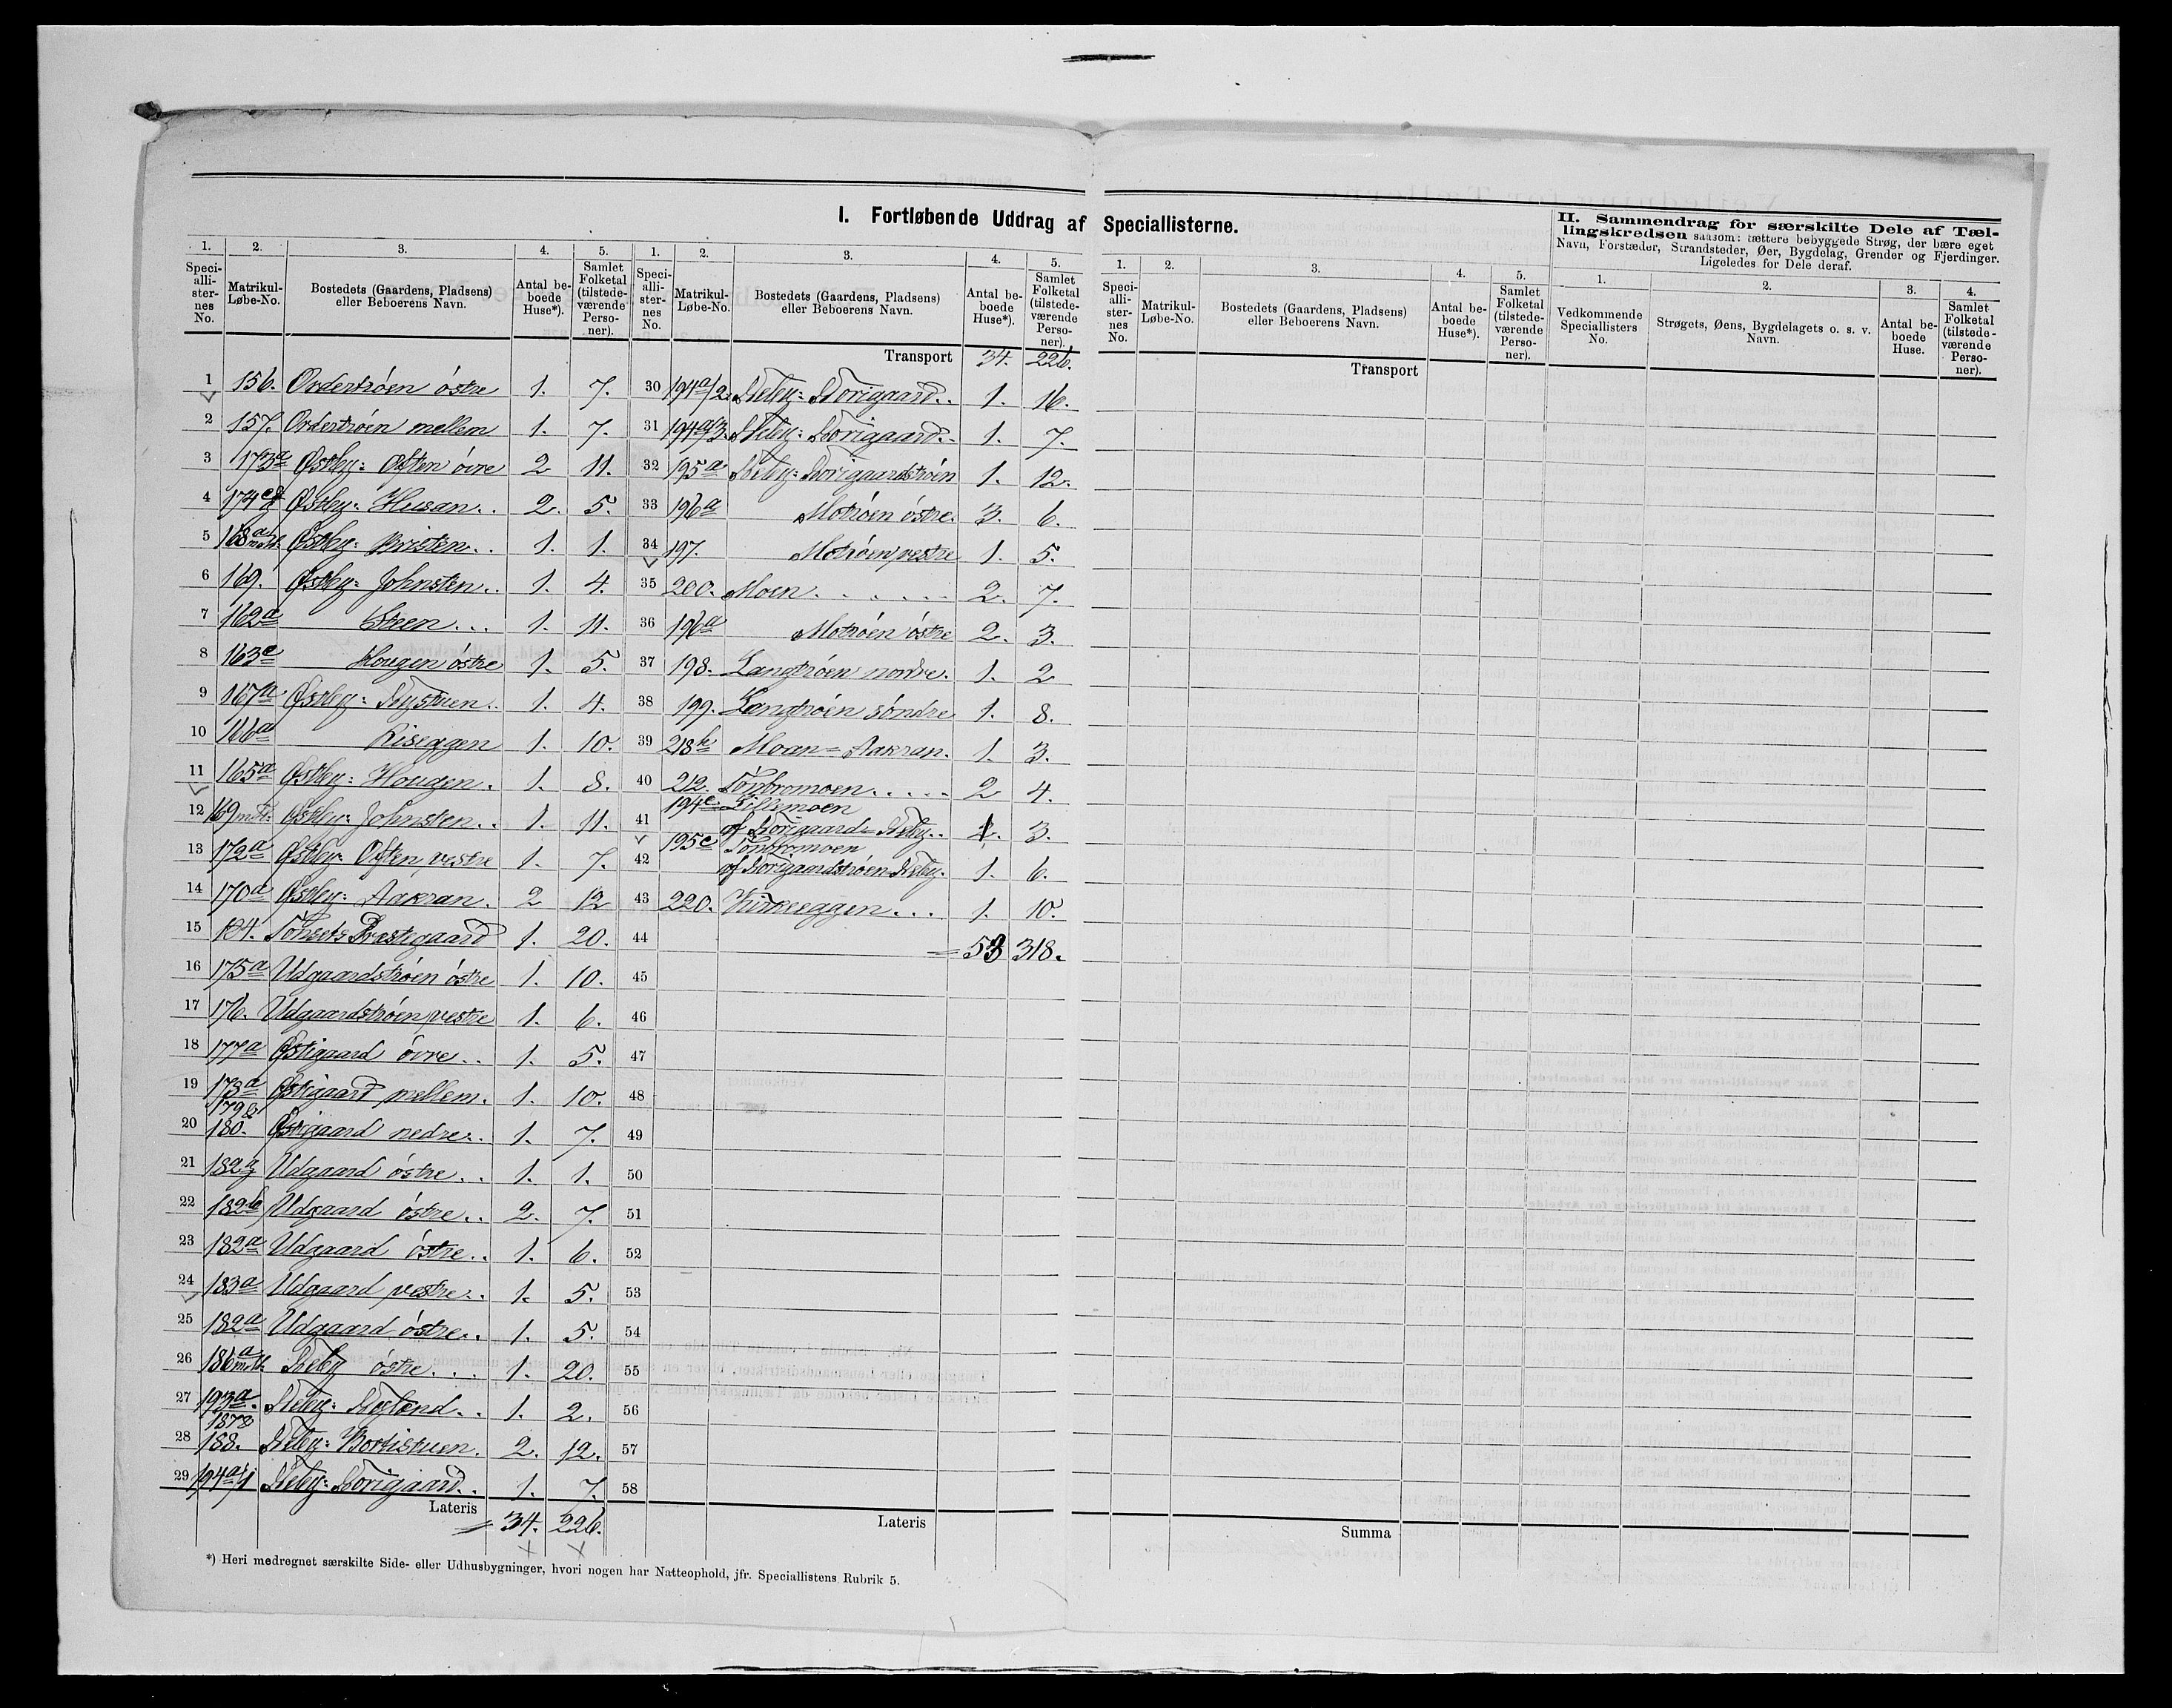 I. Fortløbende Uddrag af Speciallisterne.
1. 2. 3. 4. 5.
Speciallisternes No. Matrikul-Løbe-No. Bostedets (Gaardens, Pladsens) eller Beboerens Navn. Antal beboede Huse*). Samlet Folketal (tilstedeværende Personer).
1 156. Ordertrøen østre 1. 7.
2 157. Ordertrøen mellem 1. 7.
3 173a Østby: Often øvre 2 11.
4 174 Østby: Husan.. 2. 5.
5 168a Østby: 1. 1.
6 169. Østby: Johnsten.. 1. 4.
7 162a Steen... 1. 11.
8 163c Hougen østre 1. 5.
9 167a Østby: Nystuen. 1. 4.
10 166a Riseggen 1. 10.
11 165a Østby: Hougen. 1. 8.
12 169 mfl: Østby: Johnsten.. 1. 11.
13 172a Østby: Often vestre 1. 7.
14 170a Østby: Aakran. 2 12
15 184. Tønsets Præstegaard 1. 20.
16 175a Udgaardstrøen østre 1. 10.
17 176. Udgaardstrøen vestre 1. 6.
18 177a Østigaard øvre.. 1. 5.
19 178a Østigaard mellem. 1. 10.
20 179 & 180. Østigaard nedre.. 1. 7.
21 182g Udgaard østre.. 1. 1.
22 182b Udgaard østre.. 2. 7.
23 182a Udgaard østre.. 1. 6.
24 183a Udgaard vestre.. 1. 5.
25 182a Udgaard østre.. 1. 5.
26 186a mfl. Neby østre... 1. 20.
27 193a. Neby: 1. 2.
28 187 & 188. Neby: Bortistuen. 2. 12.
29 194a/1 Neby: Norigaard.. 1. 7.
Lateris = 34. 226.
1. 2. 3. 4. 5.
Speciallisternes No. Matrikul-Løbe-No. Bostedets (Gaardens, Pladsens) eller Beboerens Navn. Antal beboede Huse*). Samlet Folketal (tilstedeværende Personer).
Transport 34. 226.
30 194a/2. Neby: Norigaard.. 1. 16.
31 194a/3. Neby: Norigaard.. 1. 7.
32 195a Neby: Norigaardstrøen 1. 12.
33 196a Motrøen østre. 3. 6.
34 197. Motrøen vestre 1. 5.
35 200. Moen...... 2. 7.
36 196a Motrøen østre 2. 3.
37 198. Langtrøen nordre. 1. 2
38 199. Langtrøen søndre 1. 8.
39 218b Moan = Aakran. 1. 3.
40 212. Tønbromoen..... 2 4.
41 194c Lillemoen
af Norigaard = Neby.. 3.
42 195c Tønbromoen
af Norigaardstrøen Neby. 1. 6.
43 220. Kirkeeggen... 1. 10.
44 = 53 318.
45
46
47
48
49
50
51
52
53
54
55
56
57
58
Lateris
1. 2. 3. 4. 5.
Speciallisternes No. Matrikul-Løbe-No. Bostedets (Gaardens, Pladsens) eller Beboerens Navn. Antal beboede Huse*). Samlet Folketal (tilstedeværende Personer).
Transport
Summa
II. Sammendrag for særskilte Dele af Tællingskredsen saasom: tættere bebyggede Strøg, der bære eget Navn, Forstæder, Strandsteder, Øer, Bygdelag, Grender og Fjerdinger. Ligeledes for Dele deraf.
1. 2. 3. 4.
Vedkommende Speciallisters No. Strøgets, Øens, Bygdelagets o. s. v. Navn. Antal beboede Huse. Samlet Folketal (tilstedeværende Personer).
*) Heri medregnet særskilte Side- eller Udhusbygninger, hvori nogen har Natteophold, jfr. Speciallistens Rubrik 5.